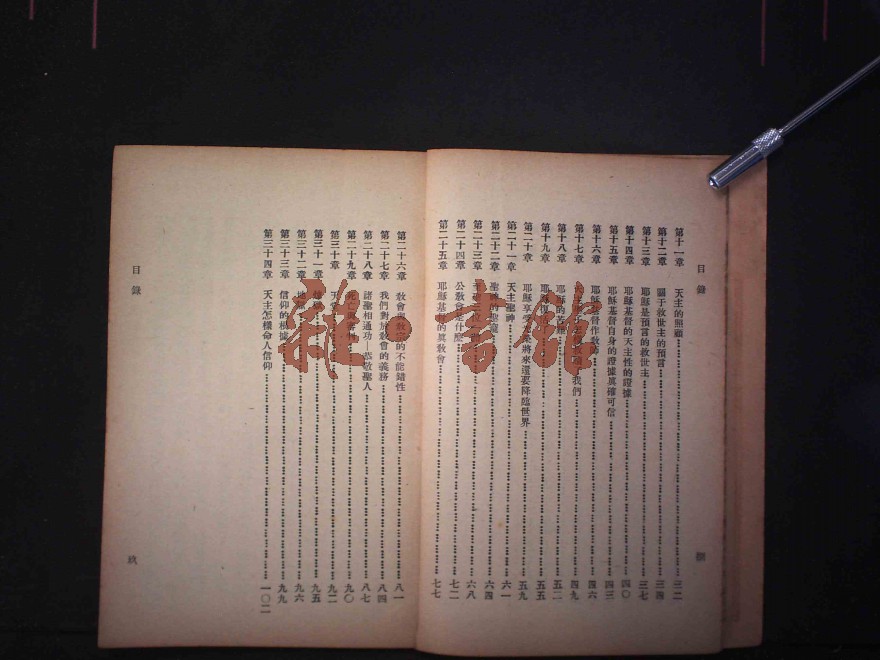 目錄
第十一章 天主的照顧 三二
第十二章 關于救世主的預言 三四
第十三章 耶穌是預言的救世主 三七
第十四章 耶穌基督的天主性的證據 四〇
第十五章 耶穌基督自身的證據眞確可信 四三
第十六章 耶穌基督作教師 四六
第十七章 我們 四九
第十八章 耶穌的 五二
第十九章 耶穌復 五五
第二十章 耶穌享受 將來還要降臨世界 五九
第二十一章 天主聖神 六一
第二十二章 聖神的聖寵 六四
第二十三章 六八
第二十四章 公敎會是什麼 七二
第二十五章 耶穌基督的眞敎會 七七
目錄
第二十六章 敎會與敎宗的不能錯性 八一
第二十七章 我們對於敎會的義務 八四
第二十八章 諸聖相通功—恭敬聖人 八七
第二十九章 死亡與審判 九〇
第三十章 天堂 九二
第三十一章 九五
第三十二章 地獄 九六
第三十三章 信仰的根據 九九
第三十四章 天主怎樣命人信仰 一〇二
玖
雅一書館